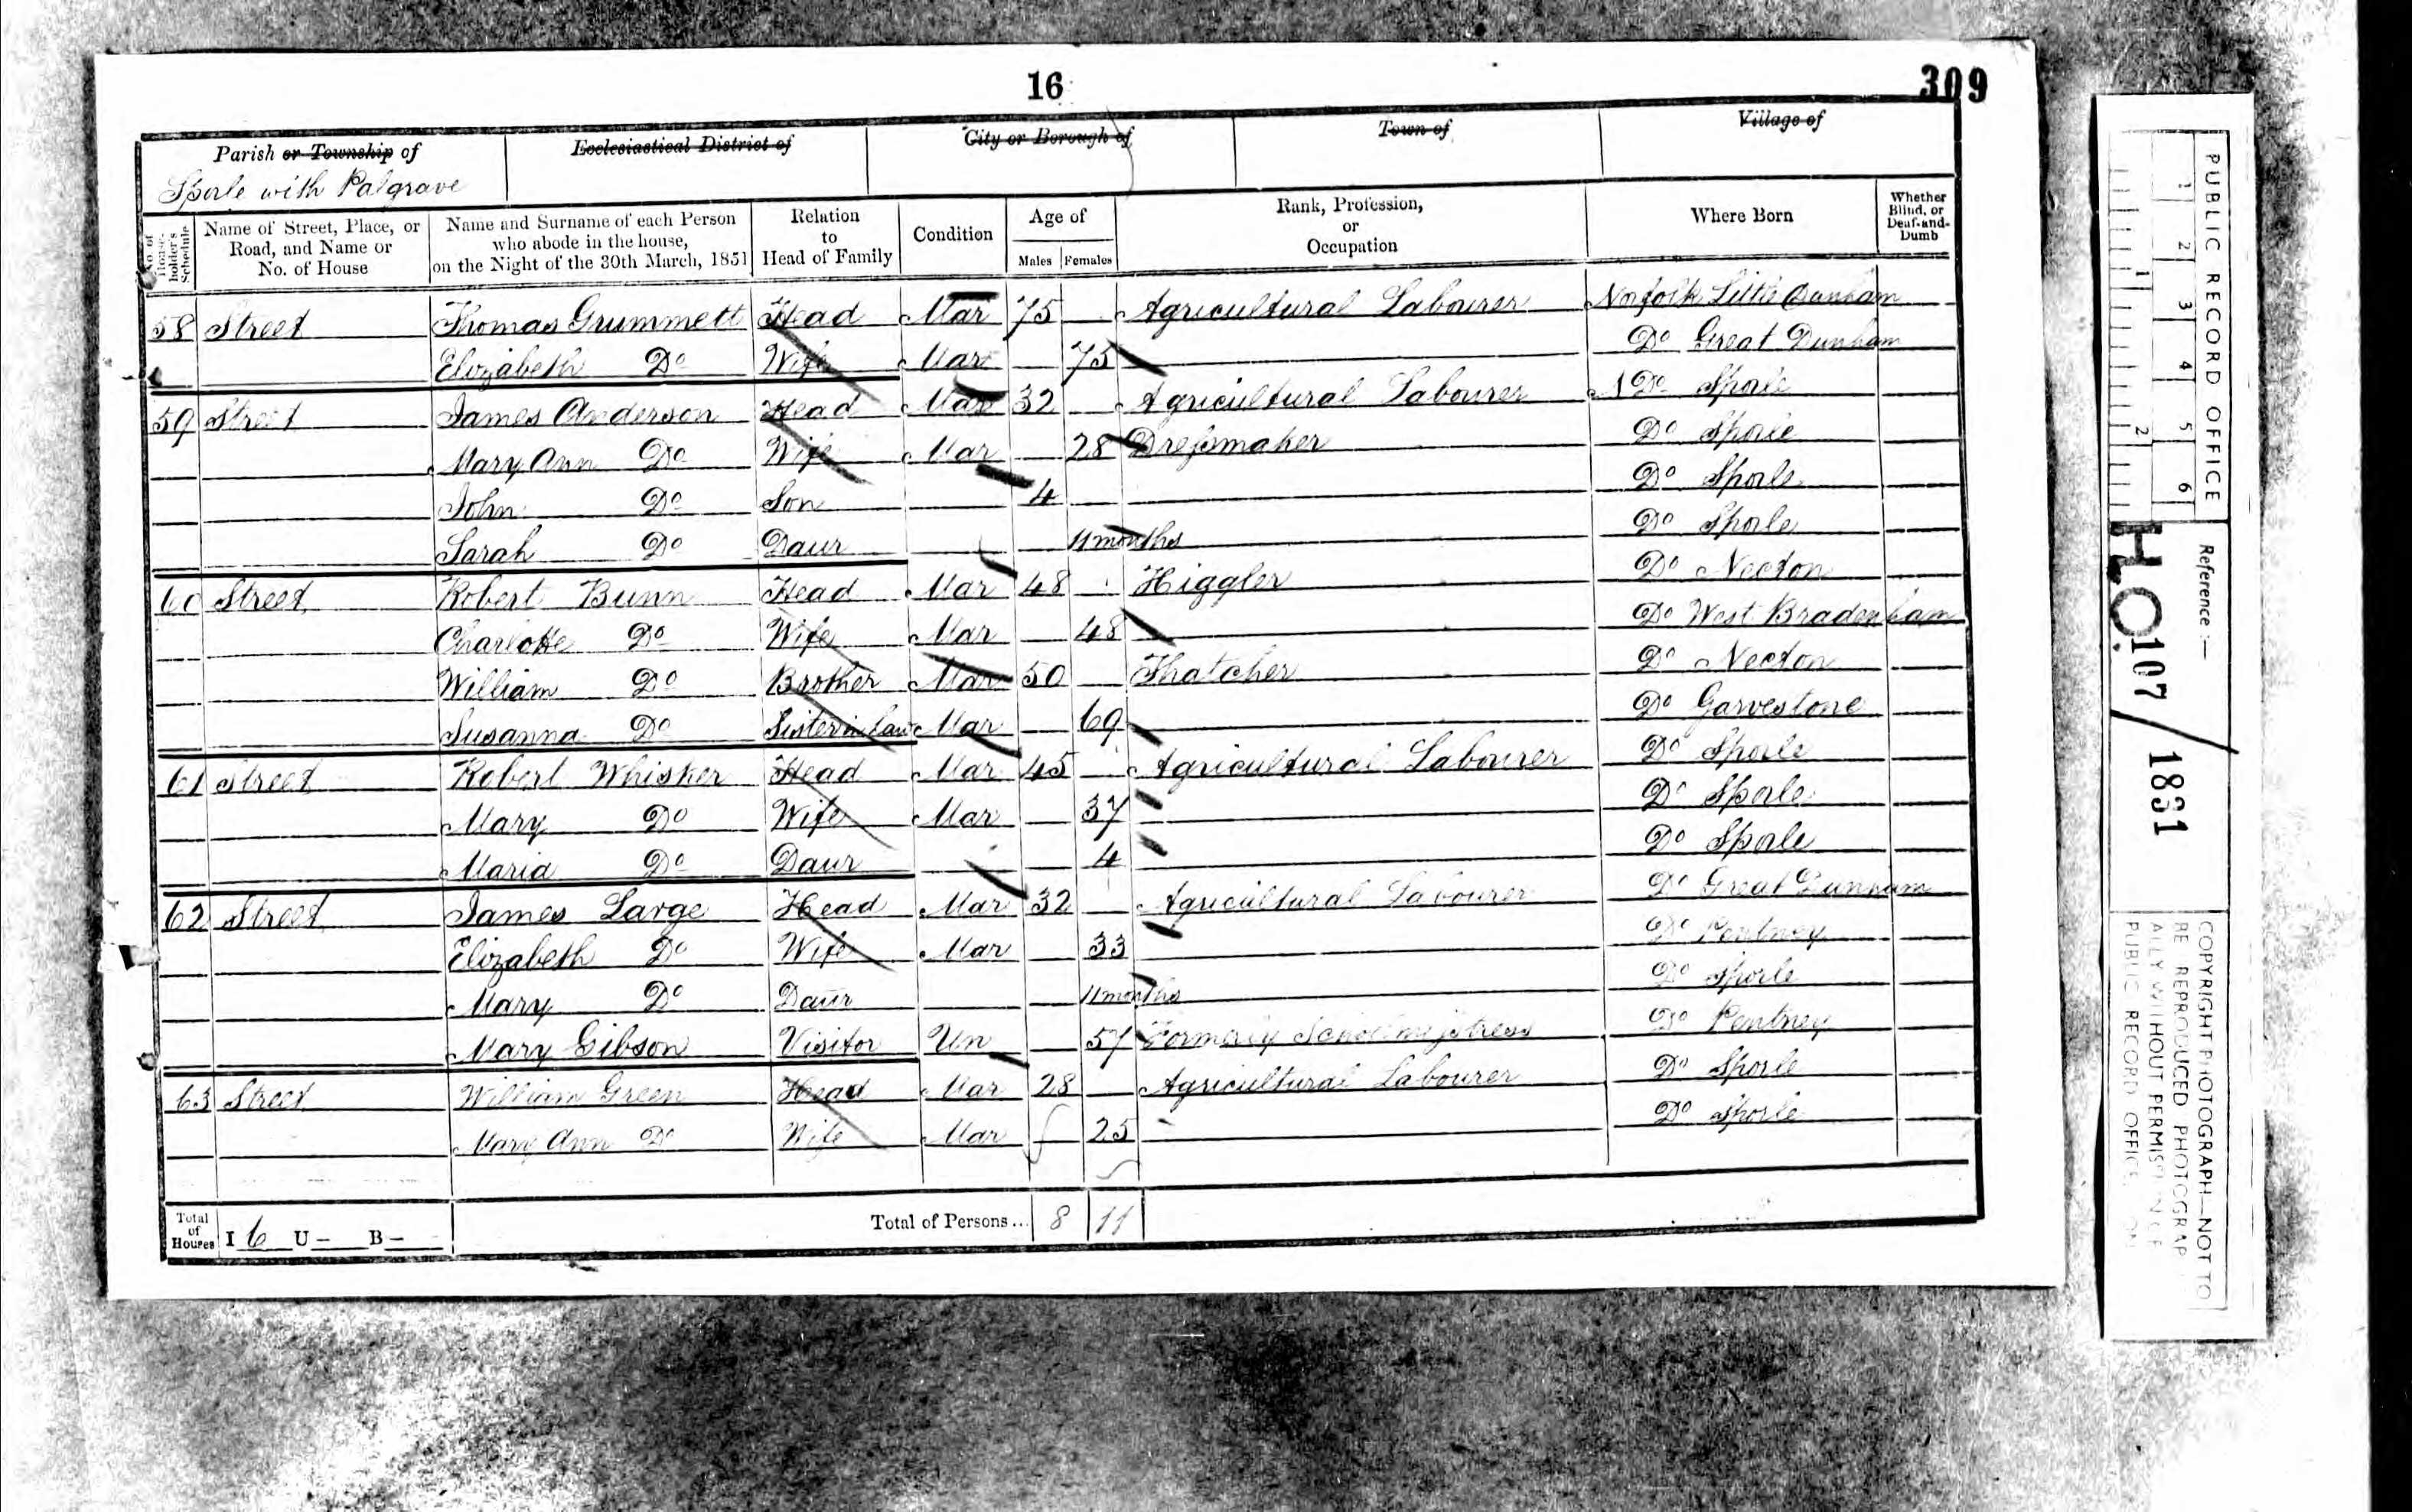 16
309
Parish or Township of
Sporle with Palgrave
Ecclesiastical District of
City or Borough of
Town of
Village of
No. of House-holder's Schedule
Name of Street, Place, or Road, and Name or No. of House
Name and Surname of each Person who abode in the house, on the Night of the 30th March, 1851
Relation to Head of Family
Condition
Age of
Males Females
Rank, Profession, or Occupation
Where Born
Whether Blind, or Deaf-and-Dumb
58 Street Thomas Grummett Head Mar 75 Agricultural Labourer Norfolk Little Dunham
Elizabeth Do Wife Mar 75 Do Great Dunham
59 Street James Anderson Head Mar 32 Agricultural Labourer Do Sporle
Mary Ann Do Wife Mar 28 Dressmaker Do Sporle
John Do Son 4 Do Sporle
Sarah Do Daur 11 months Do Sporle
60 Street Robert Bunn Head Mar 48 Higgler Do Necton
Charlotte Do Wife Mar 48 Do West Bradenham
William Do Brother Mar 50 Thatcher Do Necton
Susanna Do Sister in Law Mar 69 Do Garvestone
61 Street Robert Whisker Head Mar 45 Agricultural Labourer Do Sporle
Mary Do Wife Mar 37 Do Sporle
Maria Do Daur 4 Do Sporle
62 Street James Large Head Mar 32 Agricultural Labourer Do Great Dunham
Elizabeth Do Wife Mar 33 Do Pentney
Mary Do Daur 11 months Do Sporle
Mary Gibson Visitor Un 57 Formerly Schoolmistress Do Pentney
63 Street William Green Head Mar 28 Agricultural Labourer Do Sporle
Mary Ann Do Wife Mar 25 Do Sporle
Total of Houses I 6 U – B –
Total of Persons... 8 11
PUBLIC RECORD OFFICE
1 2 3 4 5 6
1 2
Reference :—
H.O. 107 / 1831
COPYRIGHT PHOTOGRAPH—NOT TO
BE REPRODUCED PHOTOGRAP
ALLY WITHOUT PERMISSION OF
PUBLIC RECORD OFFICE